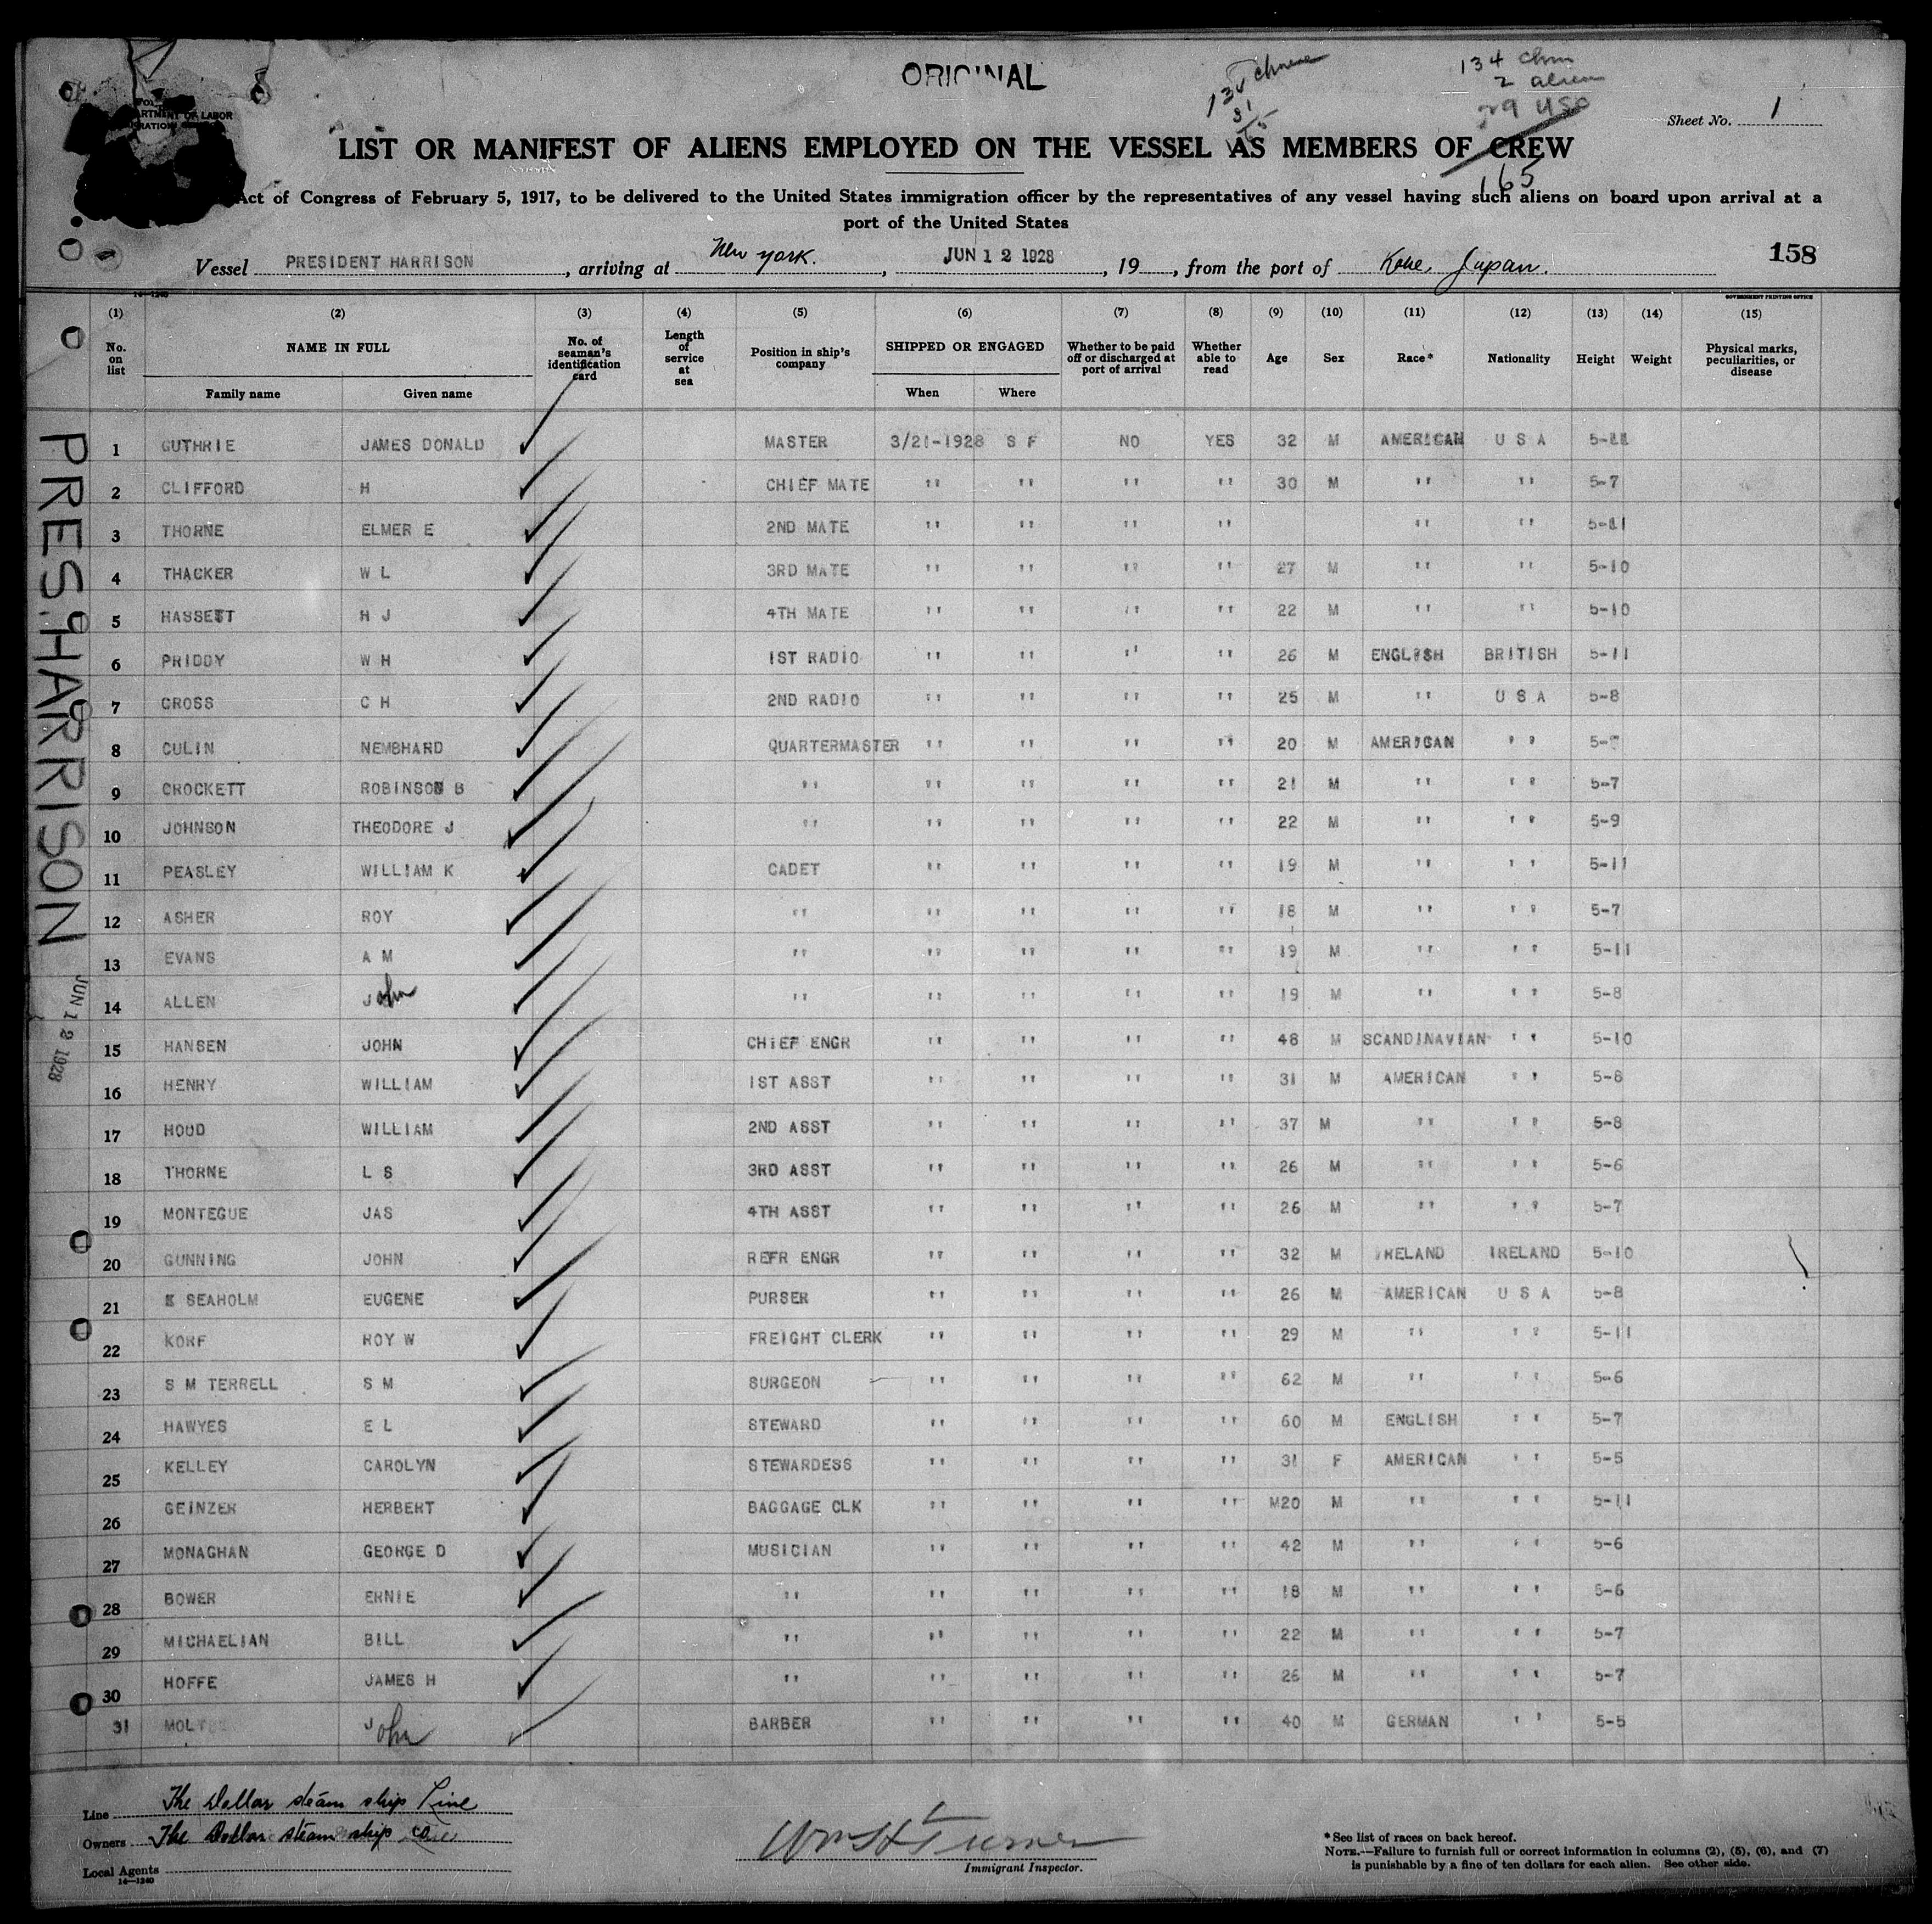 ORIGINAL
134 Chin
2 alien
29 USC
165
Sheet No. 1
ARTMENT OF LABOR
LIST OR MANIFEST OF ALIENS EMPLOYED ON THE VESSEL AS MEMBERS OF CREW
Act of Congress of February 5, 1917, to be delivered to the United States immigration officer by the representatives of any vessel having such aliens on board upon arrival at a
port of the United States
Vessel PRESIDENT HARRISON, arriving at New York., JUN 12 1928, 19, from the port of Kobe, Japan. 158
14-1240
GOVERNMENT PRINTING OFFICE
(1) (2) (3) (4) (5) (6) (7) (8) (9) (10) (11) (12) (13) (14) (15)
No. on list NAME IN FULL No. of seaman's identification card Length of service at sea Position in ship's company SHIPPED OR ENGAGED Whether to be paid off or discharged at port of arrival Whether able to read Age Sex Race* Nationality Height Weight Physical marks, peculiarities, or disease
Family name Given name When Where
1 GUTHRIE JAMES DONALD MASTER 3/21-1928 S F NO YES 32 M AMERICAN U S A 5-11
2 CLIFFORD H CHIEF MATE '' '' '' '' 30 M '' '' 5-7
3 THORNE ELMER E 2ND MATE '' '' '' '' '' '' 5-11
4 THACKER W L 3RD MATE '' '' '' '' 27 M '' '' 5-10
5 HASSETT H J 4TH MATE '' '' '' '' 22 M '' '' 5-10
6 PRIDDY W H 1ST RADIO '' '' '' '' 26 M ENGLISH BRITISH 5-11
7 CROSS C H 2ND RADIO '' '' '' '' 25 M '' U S A 5-8
8 CULIN NEMBHARD QUARTERMASTER '' '' '' '' 20 M AMERICAN '' 5-
9 CROCKETT ROBINSON B '' '' '' '' '' 21 M '' '' 5-7
10 JOHNSON THEODORE J '' '' '' '' '' 22 M '' '' 5-9
11 PEASLEY WILLIAM K CADET '' '' '' '' 19 M '' '' 5-11
12 ASHER ROY '' '' '' '' '' 18 M '' '' 5-7
13 EVANS A M '' '' '' '' '' 19 M '' '' 5-11
14 ALLEN John '' '' '' '' '' 19 M '' '' 5-8
15 HANSEN JOHN CHIEF ENGR '' '' '' '' 48 M SCANDINAVIAN '' 5-10
16 HENRY WILLIAM 1ST ASST '' '' '' '' 31 M AMERICAN '' 5-8
17 HOOD WILLIAM 2ND ASST '' '' '' '' 37 M '' '' 5-8
18 THORNE L S 3RD ASST '' '' '' '' 26 M '' '' 5-6
19 MONTEGUE JAS 4TH ASST '' '' '' '' 26 M '' '' 5-7
20 GUNNING JOHN REFR ENGR '' '' '' '' 32 M IRELAND IRELAND 5-10
21 SEAHOLM EUGENE PURSER '' '' '' '' 26 M AMERICAN U S A 5-8
22 KORF ROY W FREIGHT CLERK '' '' '' '' 29 M '' '' 5-11
23 S M TERRELL S M SURGEON '' '' '' '' 62 M '' '' 5-6
24 HAWYES E L STEWARD '' '' '' '' 60 M ENGLISH '' 5-7
25 KELLEY CAROLYN STEWARDESS '' '' '' '' 31 F AMERICAN '' 5-5
26 GEINZER HERBERT BAGGAGE CLK '' '' '' '' M20 M '' '' 5-11
27 MONAGHAN GEORGE D MUSICIAN '' '' '' '' 42 M '' '' 5-6
28 BOWER ERNIE '' '' '' '' '' 18 M '' '' 5-6
29 MICHAELIAN BILL '' '' '' '' '' 22 M '' '' 5-7
30 HOFFE JAMES H '' '' '' '' '' 26 M '' '' 5-7
31 John BARBER '' '' '' '' 40 M GERMAN '' 5-5
PRES. HARRISON
JUN 12 1928
Line The Dollar steam ship Line
Owners The Dollar steam ship co
Local Agents
14-1240
Wm H Turner
Immigrant Inspector.
*See list of races on back hereof.
NOTE.—Failure to furnish full or correct information in columns (2), (5), (6), and (7)
is punishable by a fine of ten dollars for each alien. See other side.